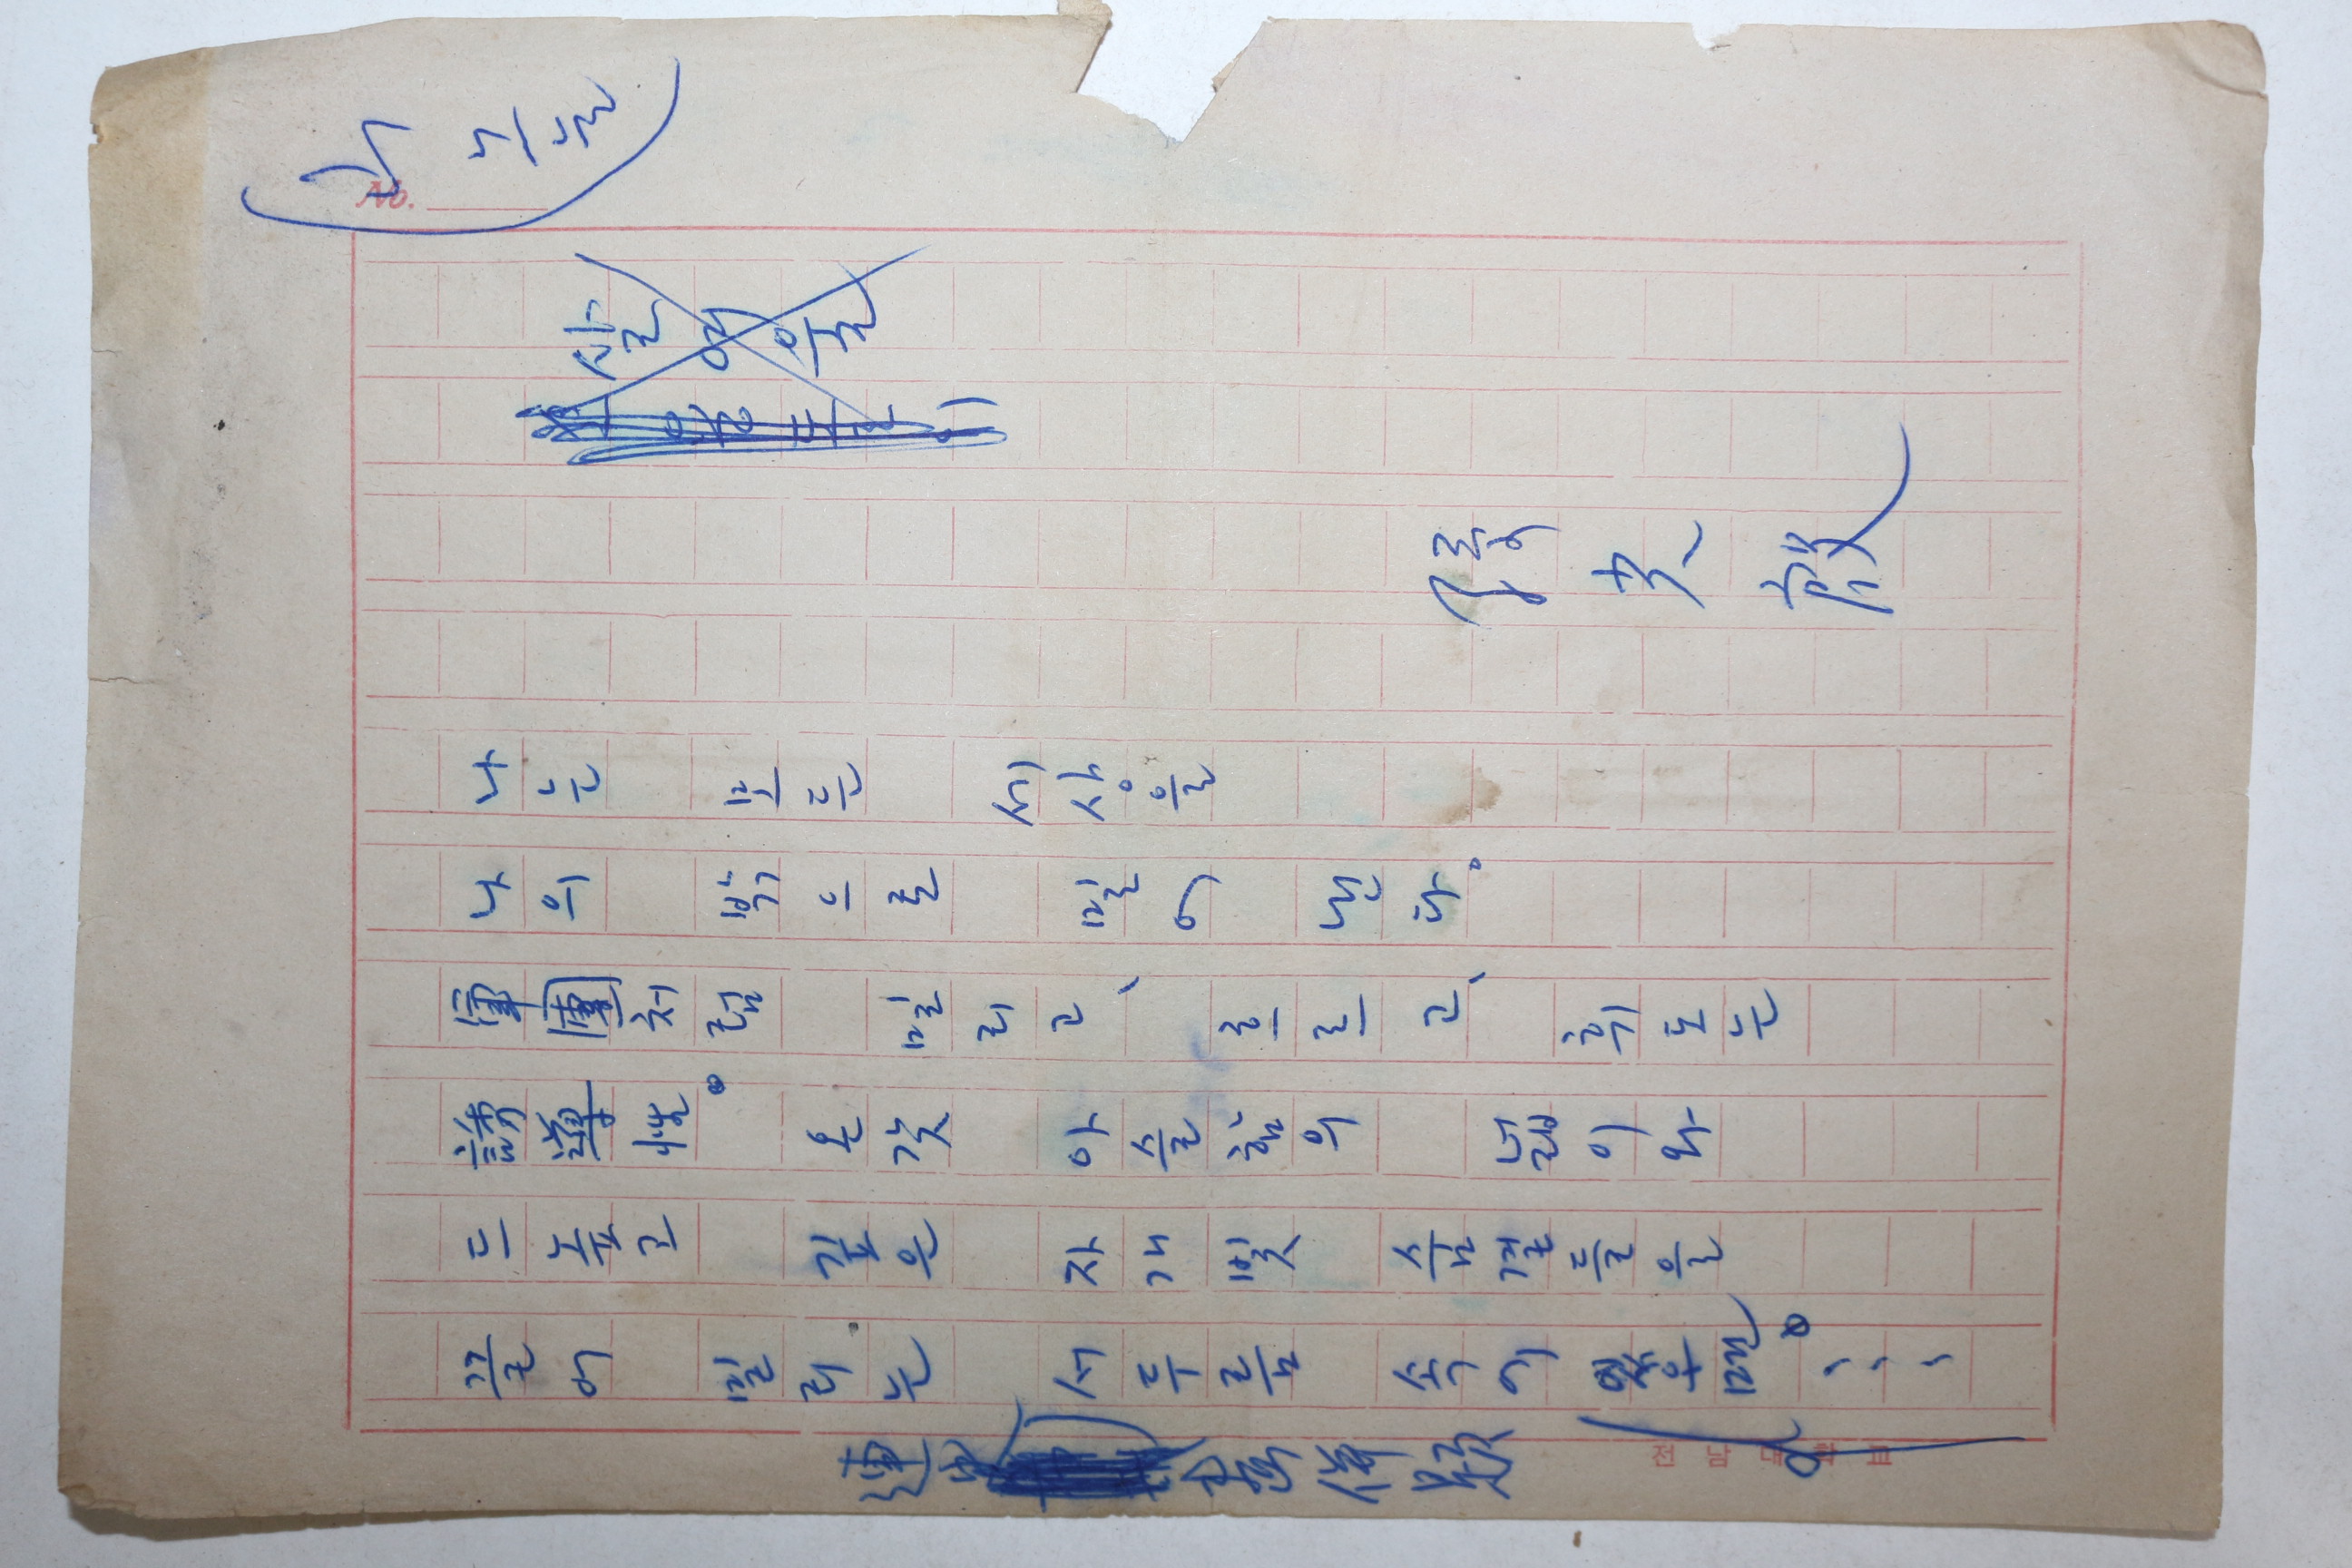 No.
살여울
孫光殷
나는 모든 세상을
나의 밖으로 밀어 낸다。
軍團처럼 밀리고、 흐르고、 휘도는
誘導性。 온갖 아슬함의 넓이와
드높고 깊은 자개빛 숨결들을
끌어 밀리는 서두름 속의
전남대학교